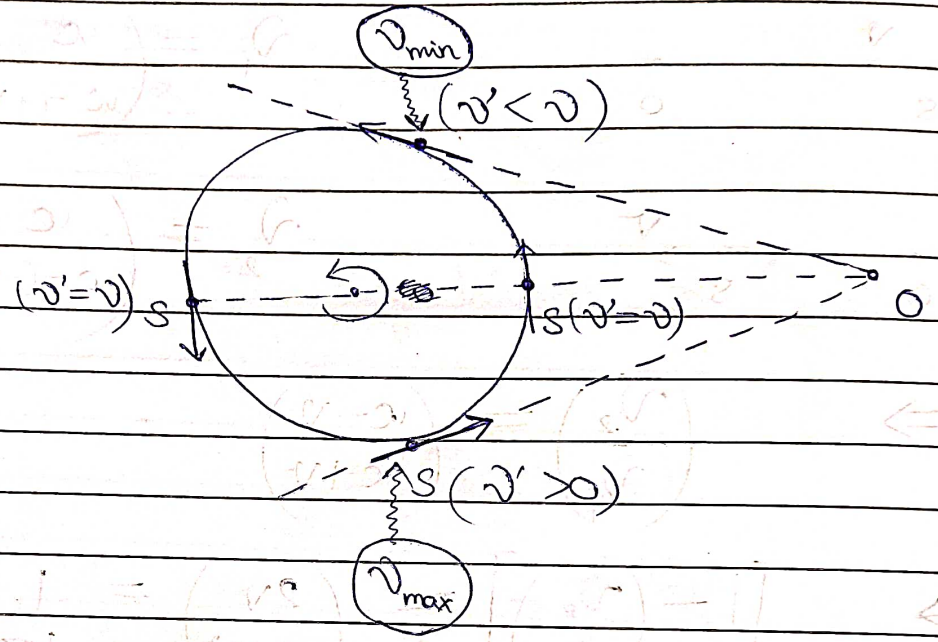 ν min
(ν' < ν)
(ν' = ν) S
S (ν' = ν)
O
S (ν' > 0)
ν max